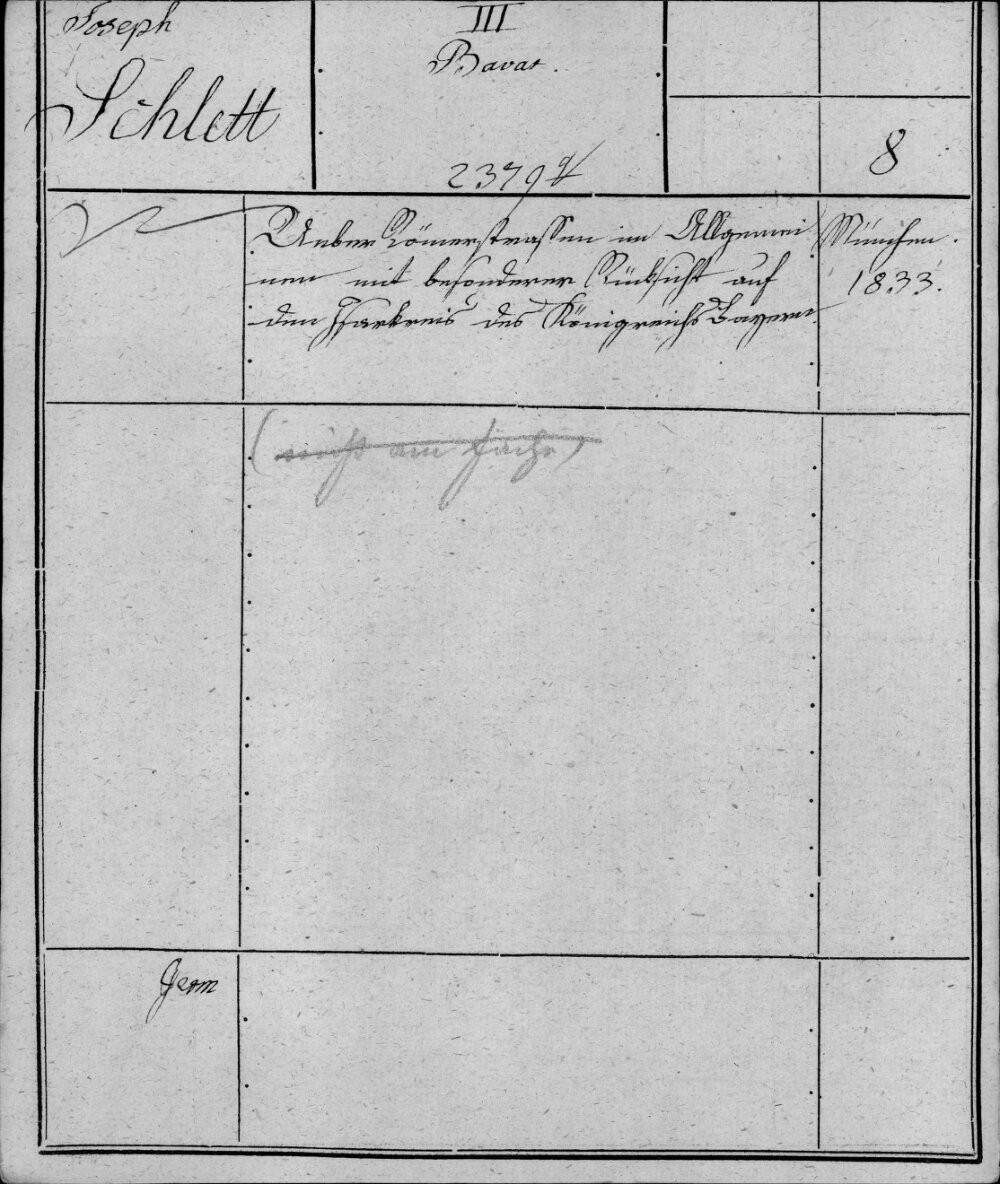 Joseph
Schlett
III
Bavar.
2379
8
Ueber Römerstrassen im Allgemei
nen mit besonderer Rücksicht auf
den Isarkreis des Königreichs Bayern
München.
1833.
(nicht am Fache)
Germ